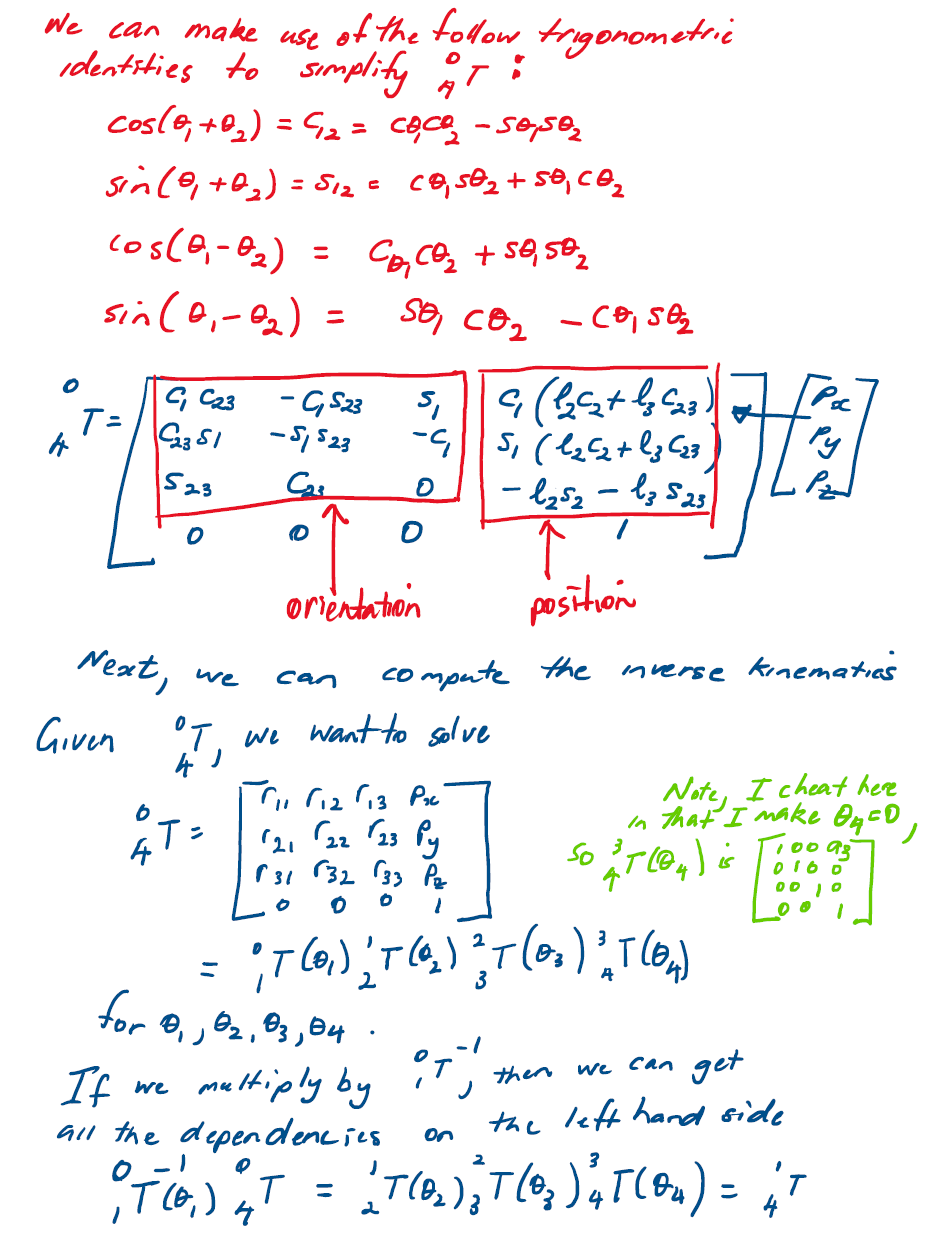 We can make use of the follow trigonometric
identities to simplify ⁰₄T :
cos(θ₁+θ₂) = C₁₂ = cθ₁cθ₂ - sθ₁sθ₂
sin(θ₁+θ₂) = s₁₂ = cθ₁sθ₂ + sθ₁cθ₂
cos(θ₁-θ₂) = Cθ₁cθ₂ + sθ₁sθ₂
sin(θ₁-θ₂) = sθ₁ cθ₂ - cθ₁sθ₂
⁰₄T = [ C₁ C₂₃ -C₁S₂₃ S₁ C₁ (l₂C₂ + l₃C₂₃) ] [ Px ]
C₂₃S1 -S₁S₂₃ -C₁ S₁ (l₂C₂ + l₃C₂₃) Py
S₂₃ C₂₃ 0 -l₂S₂ - l₃S₂₃ Pz
0 0 0 1
orientation position
Next, we can compute the inverse kinematics
Given ⁰₄T, we want to solve
⁰₄T = [ r₁₁ r₁₂ r₁₃ Px ]
r₂₁ r₂₂ r₂₃ Py
r₃₁ r₃₂ r₃₃ Pz
0 0 0 1
Note, I cheat here
in that I make θ₄=0,
so ³₄T(θ₄) is [ 1 0 0 a₃ ]
0 1 0 0
0 0 1 0
0 0 1
= ⁰₁T(θ₁) ¹₂T(θ₂) ²₃T(θ₃) ³₄T(θ₄)
for θ₁, θ₂, θ₃, θ4 .
If we multiply by ⁰₁T⁻¹, then we can get
all the dependencies on the left hand side
⁰₁T⁻¹(θ₁) ⁰₄T = ¹₂T(θ₂) ²₃T(θ₃) ³₄T(θ₄) = ¹₄T